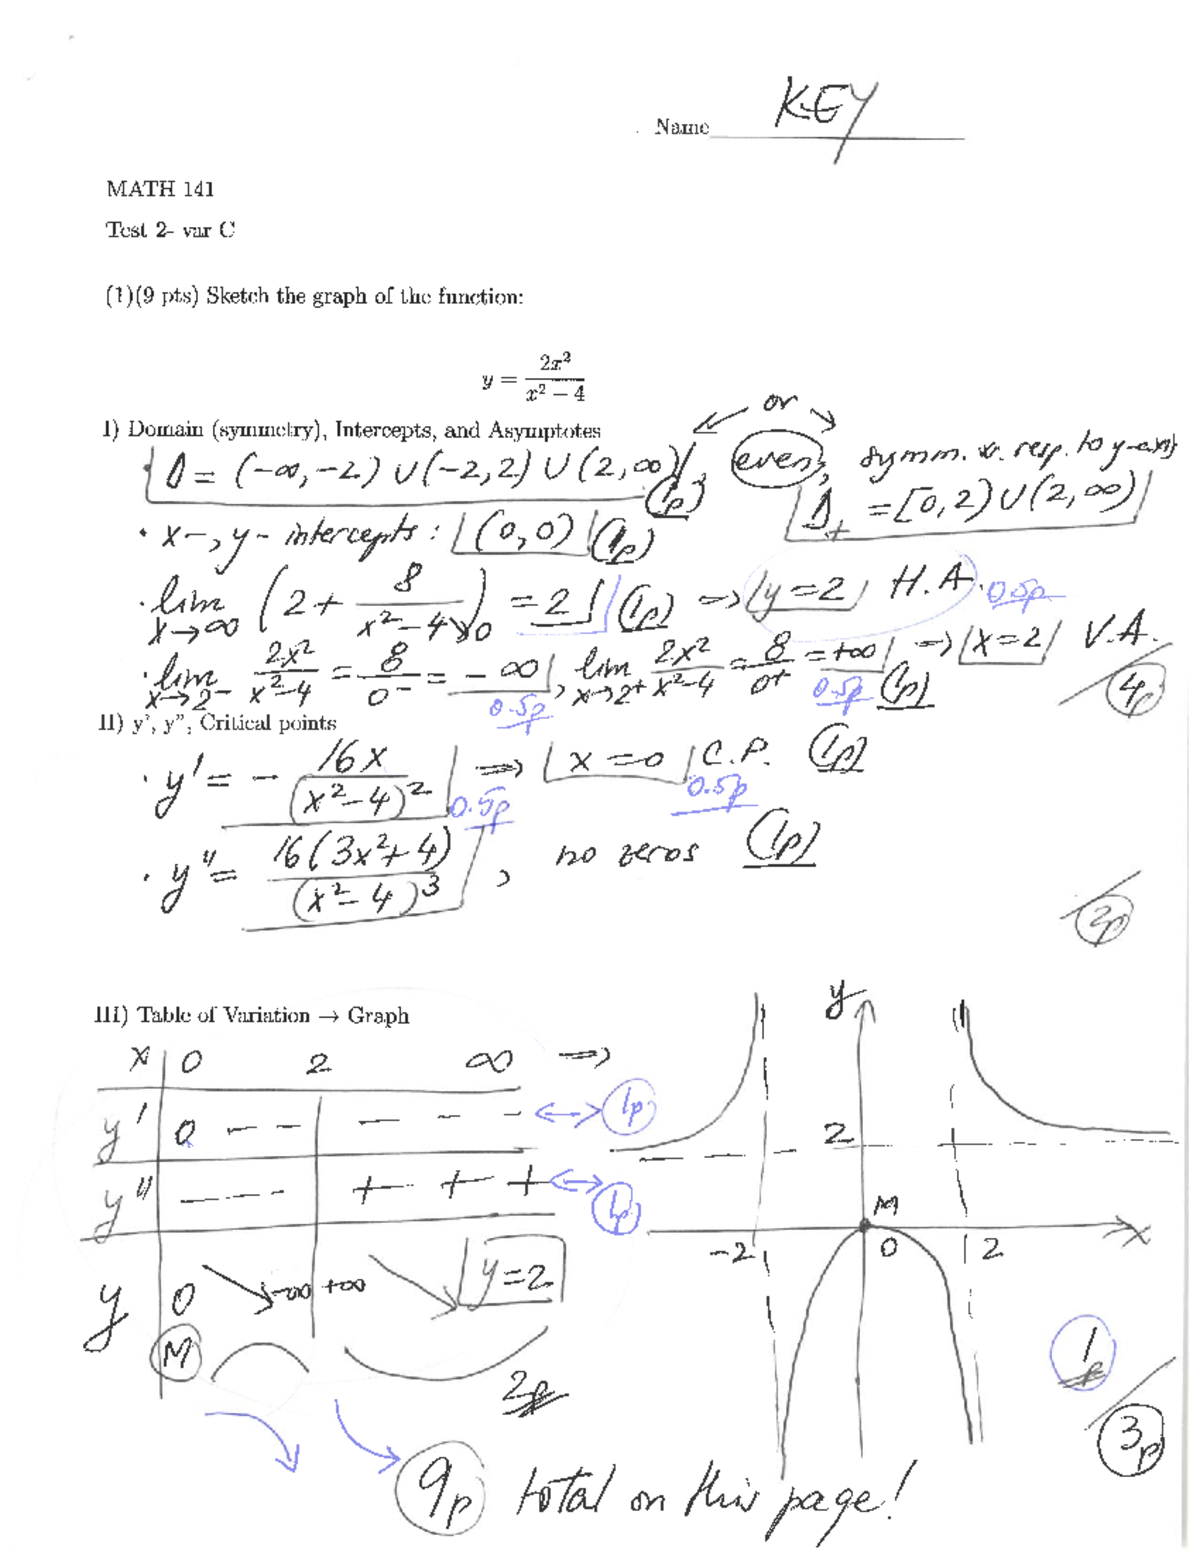 Name KEY
MATH 141
Test 2- var C
(1)(9 pts) Sketch the graph of the function:
y = 2x² / (x² − 4)
or
I) Domain (symmetry), Intercepts, and Asymptotes
D = (-∞, -2) ∪ (-2, 2) ∪ (2, ∞) (1p) even, symm. w. resp. to y-axis
D+ = [0, 2) ∪ (2, ∞)
• x-, y- intercepts: (0,0) (1p)
• lim x→∞ (2 + 8 / (x² − 4) ↘0) = 2 (1p) ⇒ y = 2 H.A. 0.5p
• lim x→2⁻ 2x² / (x²−4) = 8 / 0⁻ = -∞, lim x→2⁺ 2x² / (x²−4) = 8 / 0⁺ = +∞ ⇒ x = 2 V.A.
0.5p 0.5p (1p) 4p
II) y', y", Critical points
• y' = − 16x / (x² − 4)² ⇒ x = 0 C.P. (1p)
0.5p 0.5p
• y" = 16(3x² + 4) / (x² − 4)³, no zeros (1p)
2p
III) Table of Variation → Graph
x 0 2 ∞ ⇒
y' 0 − − − − − ↔ 1p
y" − − − + + + ↔ 1p
y 0 -∞ +∞ y = 2
M
2p
y
2
M
-2 0 2 x
1p
3p
9p total on this page!